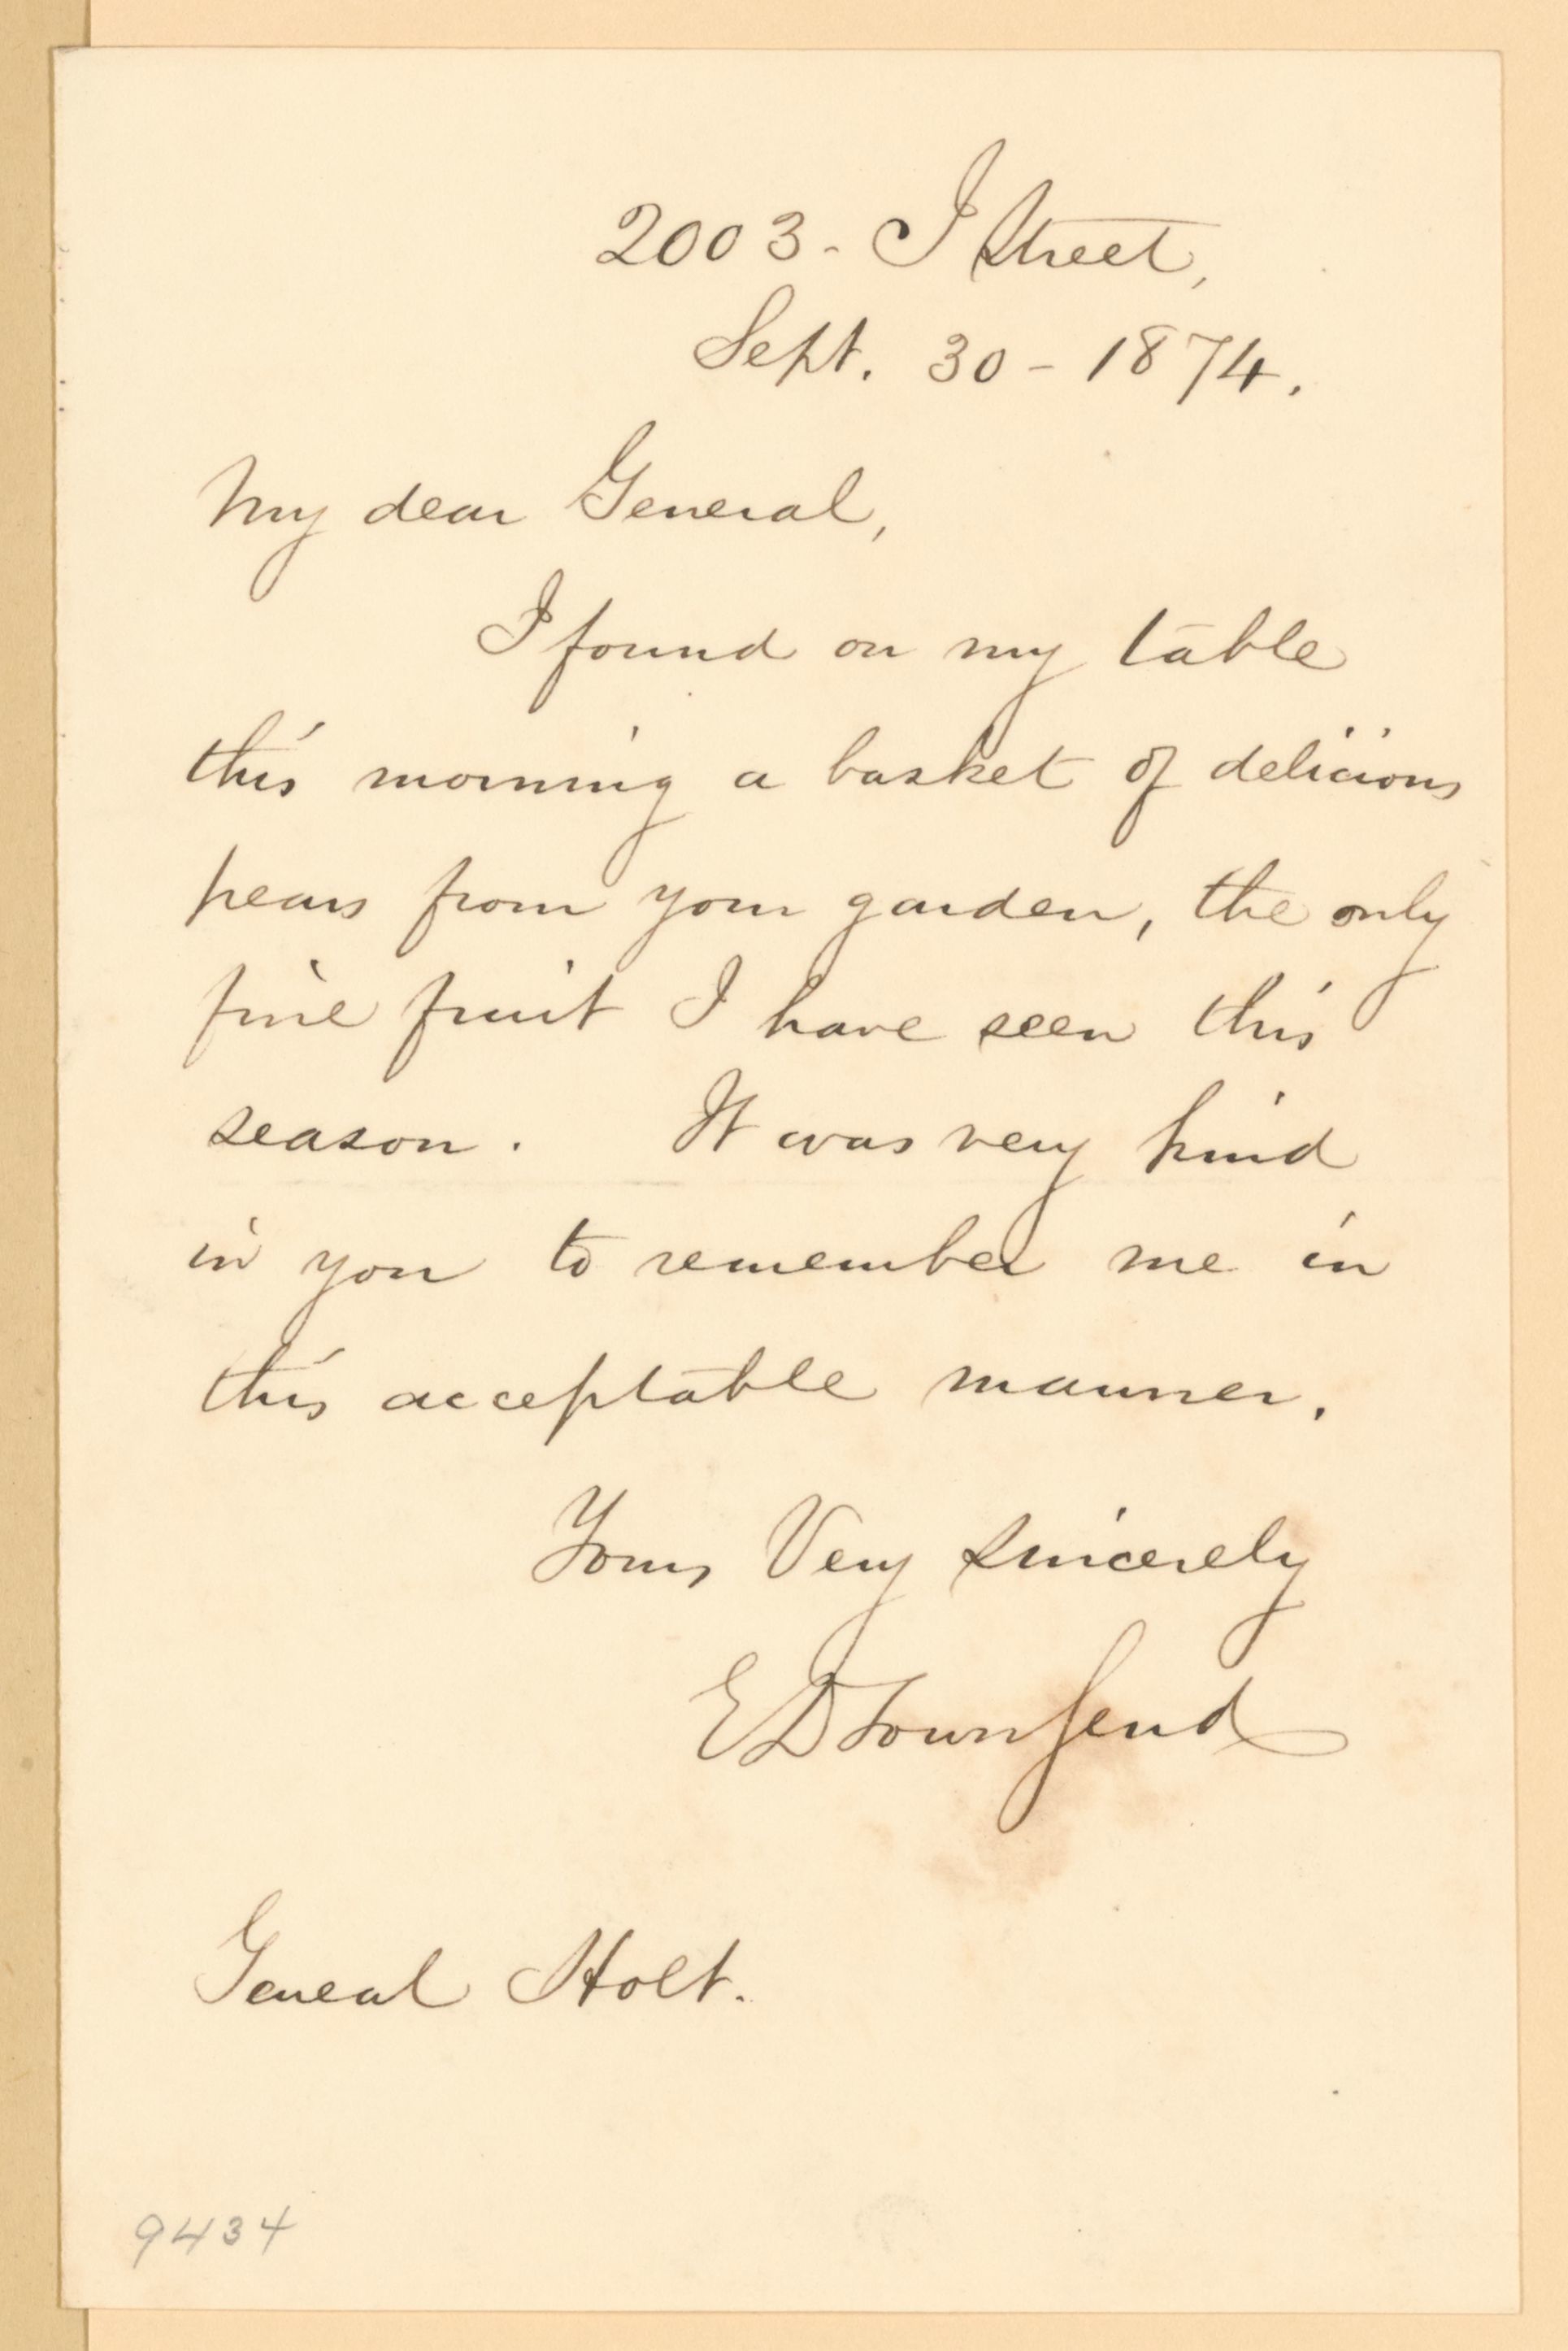 2003 - I Street,
Sept. 30 - 1874.
My dear General,
I found on my table
this morning a basket of delicious
pears from your garden, the only
fine fruit I have seen this
season. It was very kind
in you to remember me in
this acceptable manner.
Yours Very sincerely
E D Townsend
General Holt.
9434